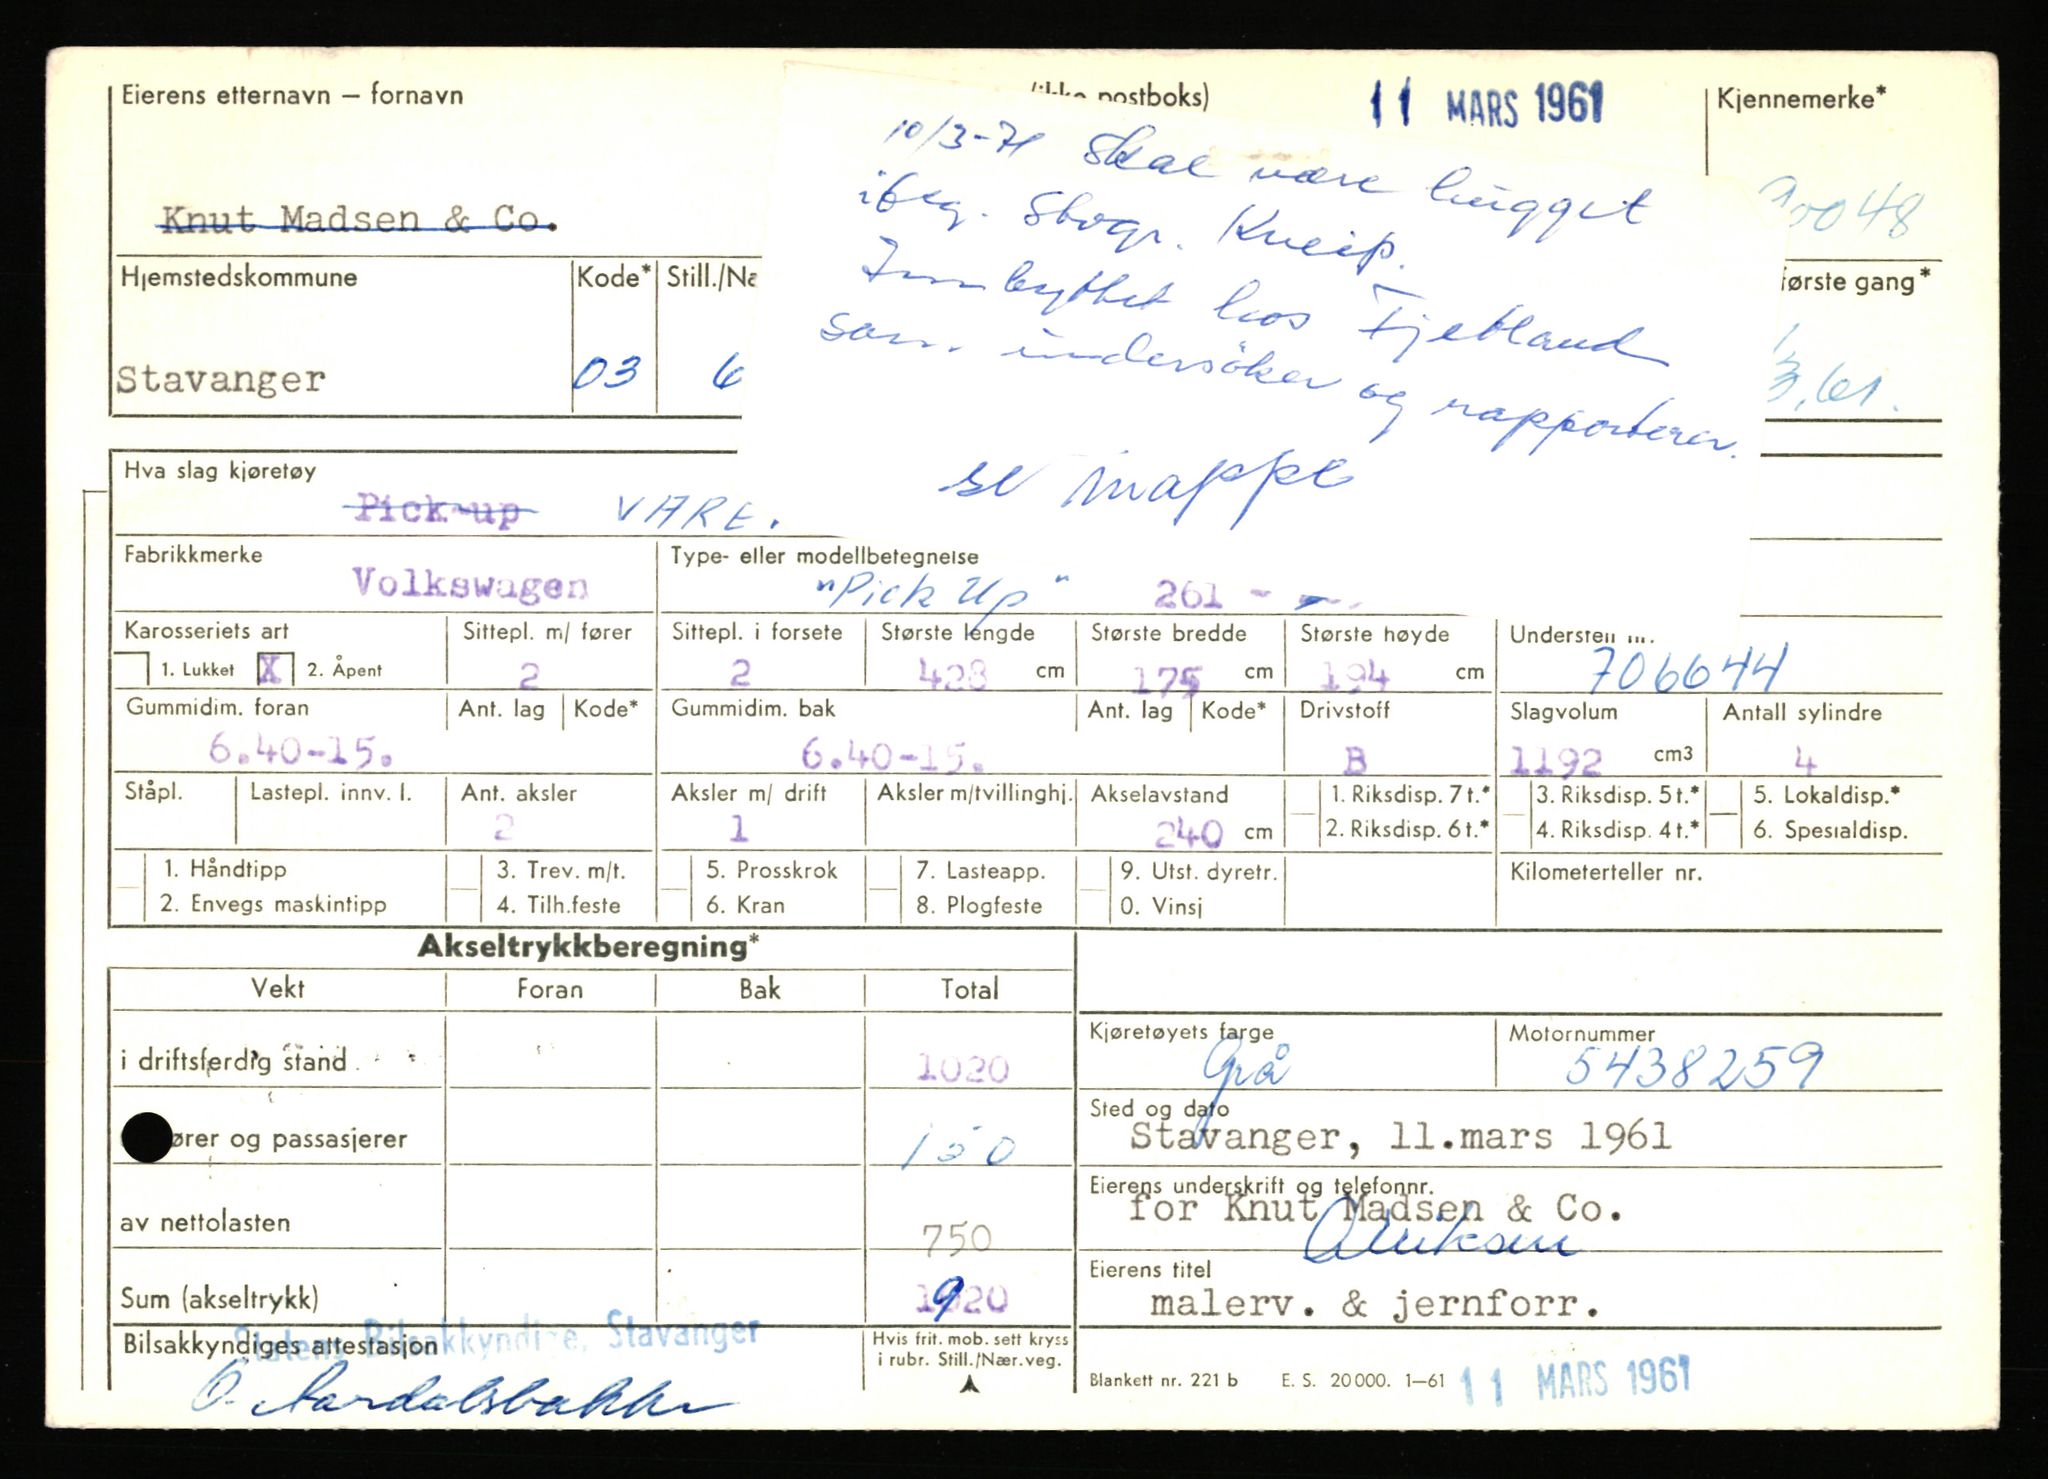 Eierens etternavn – fornavn
postboks)
11 MARS 1961
Kjennemerke*
10/3-71 Skal være hugget
ifølg. Skogr. Kneip.
Innbyttet hos Fjetland
som undersöker og rapporterer.
se mappe
0048
Knut Madsen & Co.
Hjemstedskommune
Kode*
Still./Næ
ørste gang*
Stavanger
03
6
3.61.
Hva slag kjøretøy
Pick-up VARE.
Fabrikkmerke
Type- eller modellbetegnelse
Volkswagen
"Pick Up" 261 -
Karosseriets art
Sittepl. m/ fører
Sittepl. i forsete
Største lengde
Største bredde
Største høyde
Understell nr.
1. Lukket X 2. Åpent
2
2
428 cm
175 cm
194 cm
706644
Gummidim. foran
Ant. lag
Kode*
Gummidim. bak
Ant. lag
Kode*
Drivstoff
Slagvolum
Antall sylindre
6.40-15.
6.40-15.
B
1192 cm3
4
Ståpl.
Lastepl. innv. l.
Ant. aksler
Aksler m/ drift
Aksler m/tvillinghj.
Akselavstand
1. Riksdisp. 7 t.*
3. Riksdisp. 5 t.*
5. Lokaldisp.*
2
1
240 cm
2. Riksdisp. 6 t.*
4. Riksdisp. 4 t.*
6. Spesialdisp.
1. Håndtipp
3. Trev. m/t.
5. Prosskrok
7. Lasteapp.
9. Utst. dyretr.
Kilometerteller nr.
2. Envegs maskintipp
4. Tilh.feste
6. Kran
8. Plogfeste
0. Vinsj
Akseltrykkberegning*
Vekt
Foran
Bak
Total
i driftsferdig stand
1020
Kjøretøyets farge
Motornummer
Grå
5438259
ører og passasjerer
150
Sted og dato
Stavanger, 11.mars 1961
av nettolasten
750
Eierens underskrift og telefonnr.
for Knut Madsen & Co.
Sum (akseltrykk)
1920
Eierens titel
malerv. & jernforr.
Statens Bilsakkyndige, Stavanger
Bilsakkyndiges attestasjon
Hvis frit. mob. sett kryss
i rubr. Still./Nær.veg.
O. Aardalsbakke
Blankett nr. 221 b E. S. 20 000. 1–61
11 MARS 1961